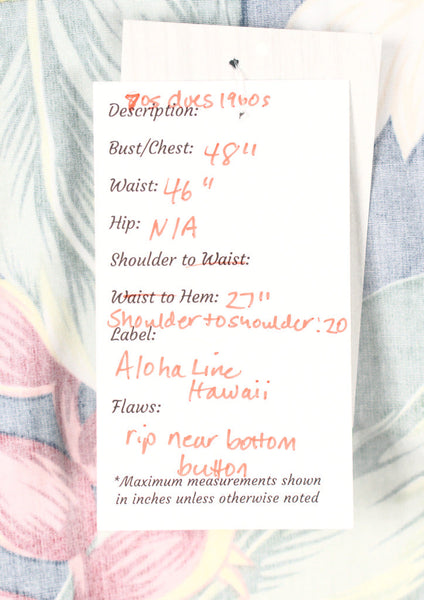 70s does 1960s
Description:
Bust/Chest: 48"
Waist: 46"
Hip: N/A
Shoulder to Waist:
Waist to Hem: 27"
Shoulder to shoulder: 20
Label:
Aloha Line
Hawaii
Flaws:
rip near bottom
button
*Maximum measurements shown
in inches unless otherwise noted